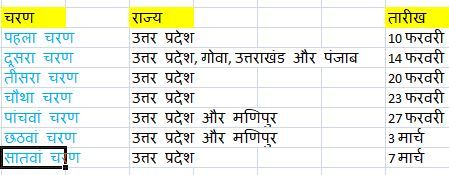 चरण राज्य तारीख
पहला चरण उत्तर प्रदेश 10 फरवरी
दूसरा चरण उत्तर प्रदेश, गोवा, उत्तराखंड और पंजाब 14 फरवरी
तीसरा चरण उत्तर प्रदेश 20 फरवरी
चौथा चरण उत्तर प्रदेश 23 फरवरी
पांचवां चरण उत्तर प्रदेश और मणिपुर 27 फरवरी
छठवां चरण उत्तर प्रदेश और मणिपुर 3 मार्च
सातवां चरण उत्तर प्रदेश 7 मार्च